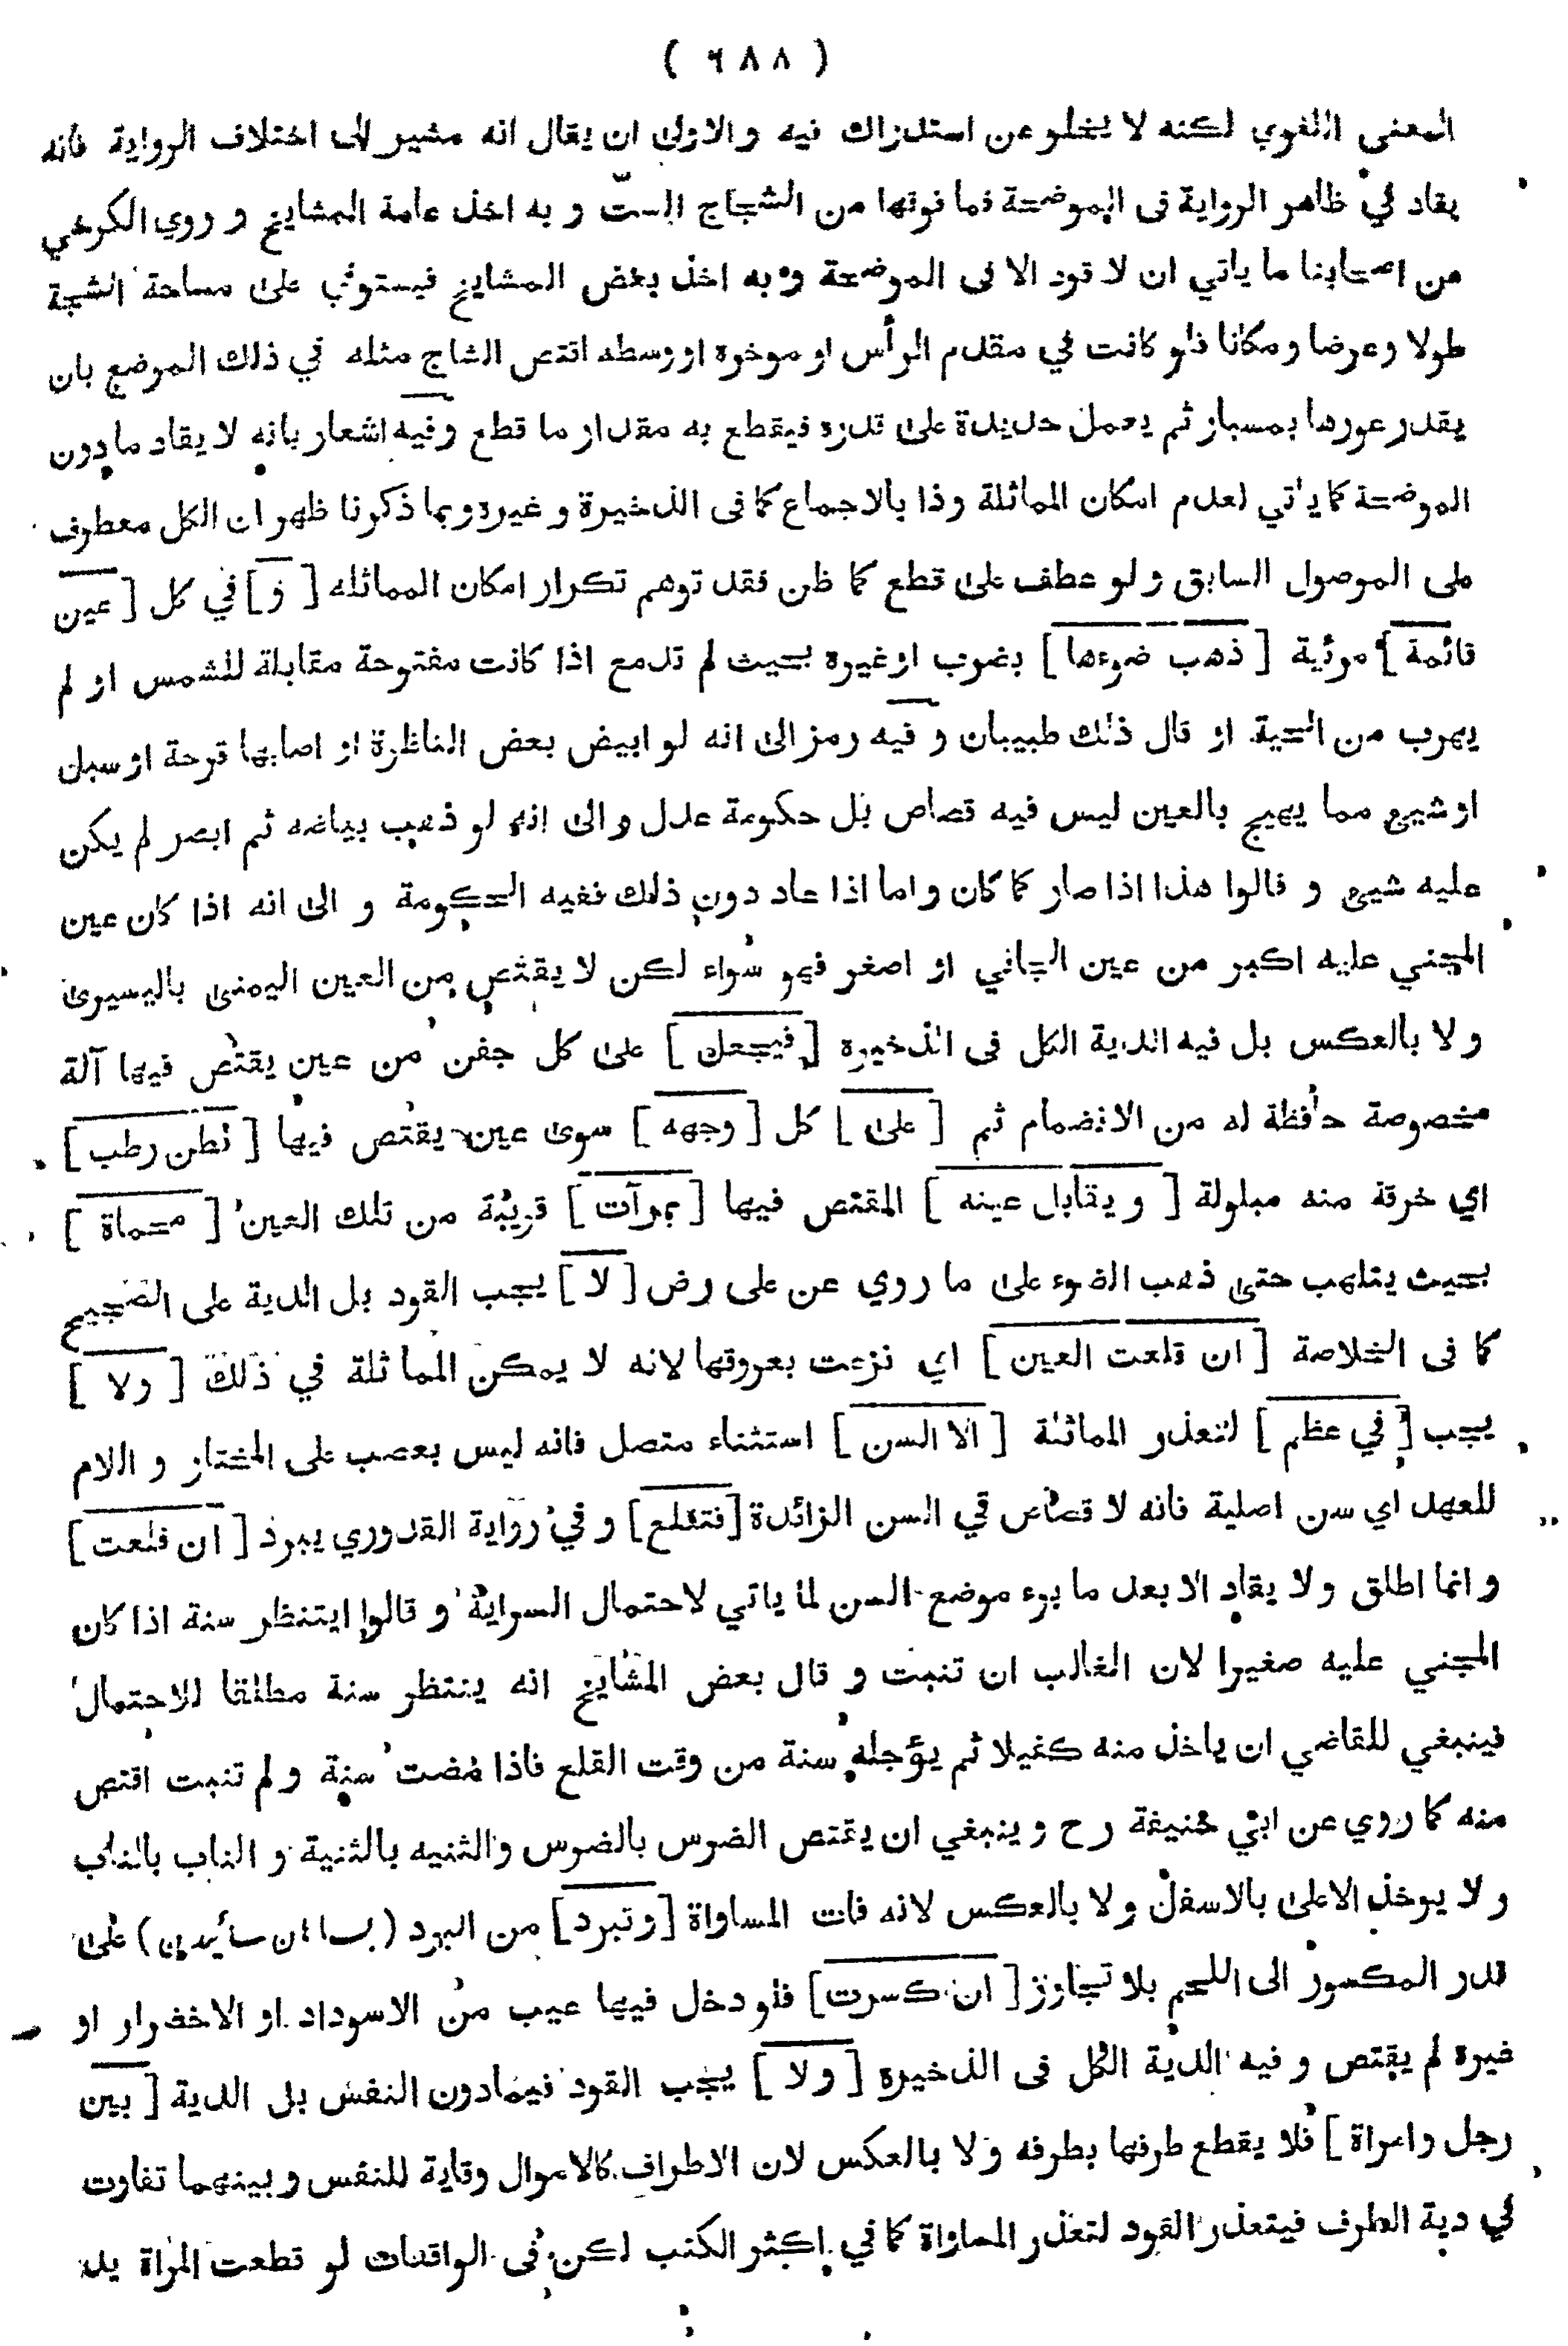 ( ٦٨٨ )
المعنى اللغوي لكنه لا يخلو عن استدراك فيه والاولى ان يقال انه مشير الى اختلاف الرواية فانه
يقاد في ظاهر الرواية فى الموضحة فما فوقها من الشجاج الست و به اخذ عامة المشايخ و روي الكرخي
من اصحابنا ما ياتي ان لا قود الا فى الموضحة وبه اخذ بعض المشايخ فيستوفي على مساحة الشجة
طولا وعرضا ومكانا فلو كانت في مقدم الرأس او موخره او وسطه اقتص الشاج مثله في ذلك الموضع بان
يقدر غورها بمسبار ثم يعمل حديدة على قدره فيقطع به مقدار ما قطع وفيه اشعار بانه لا يقاد مادون
الموضحة كما ياتي لعدم امكان المماثلة وذا بالاجماع كما فى الذخيرة و غيره وبما ذكرنا ظهر ان الكل معطوف
على الموصول السابق ولو عطف على قطع كما ظن فقد توهم تكرار امكان المماثله [ و ] في كل [ عين
قائمة ] مرئية [ ذهب ضوءها ] بضرب او غيره بحيث لم تدمع اذا كانت مفتوحة مقابلة للشمس او لم
يهرب من الحية او قال ذلك طبيبان و فيه رمز الى انه لو ابيض بعض الناظرة او اصابها قرحة او سبل
او شيئ مما يهيج بالعين ليس فيه قصاص بل حكومة عدل و الى انه لو ذهب بياضه ثم ابصر لم يكن
عليه شيئ و قالوا هذا اذا صار كما كان واما اذا عاد دون ذلك ففيه الحكومة و الى انه اذا كان عين
المجني عليه اكبر من عين الجاني او اصغر فهو سواء لكن لا يقتص من العين اليمنى باليسرى
ولا بالعكس بل فيه الدية الكل فى الذخيره [ فيجعل ] على كل جفن من عين يقتص فيها آلة
مخصوصة حافظة له من الانضمام ثم [ على ] كل [ وجهه ] سوى عين يقتص فيها [ قطن رطب ]
اي خرقة منه مبلولة [ و يقابل عينه ] المقتص فيها [ بمرآت ] قريبة من تلك العين [ محماة ]
بحيث يتلهب حتى ذهب الضوء على ما روي عن على رض [ لا ] يجب القود بل الدية على الصحيح
كما فى الخلاصة [ ان قلعت العين ] اي نزعت بعروقها لانه لا يمكن المماثلة في ذلك [ ولا ]
يجب [ في عظم ] لتعذر المماثلة [ الا السن ] استثناء متصل فانه ليس بعصب على المختار و اللام
للعهد اي سن اصلية فانه لا قصاص في السن الزائدة [ فتقلع ] و في رواية القدوري يبرد [ ان قلعت ]
و انما اطلق و لا يقاد الا بعد ما برء موضع السن لما ياتي لاحتمال السراية و قالوا ايتنظر سنة اذا كان
المجني عليه صغيرا لان الغالب ان تنبت و قال بعض المشايخ انه ينتظر سنة مطلقا للاحتمال
فينبغي للقاضي ان ياخذ منه كفيلا ثم يؤجله سنة من وقت القلع فاذا مضت سنة ولم تنبت اقتص
منه كما روي عن ابي حنيفة رح و ينبغي ان يقتص الضرس بالضرس والثنيه بالثنية و الناب بالناب
و لا يوخذ الاعلى بالاسفل و لا بالعكس لانه فات المساواة [ وتبرد ] من البرد ( سائيدين) على
قدر المكسور الى اللحم بلا تجاوز [ ان كسرت ] فلو دخل فيها عيب من الاسوداد او الاخضرار او
غيره لم يقتص و فيه الدية الكل فى الذخيره [ ولا ] يجب القود فيمادون النفس بل الدية [ بين
رجل وامراة ] فلا يقطع طرفها بطرفه ولا بالعكس لان الاطراف كالاموال وقاية للنفس وبينهما تفاوت
في دية الطرف فيتعذر القود لتعذر المساواة كما في اكثر الكتب لكن فى الواقعات لو قطعت المراة يد